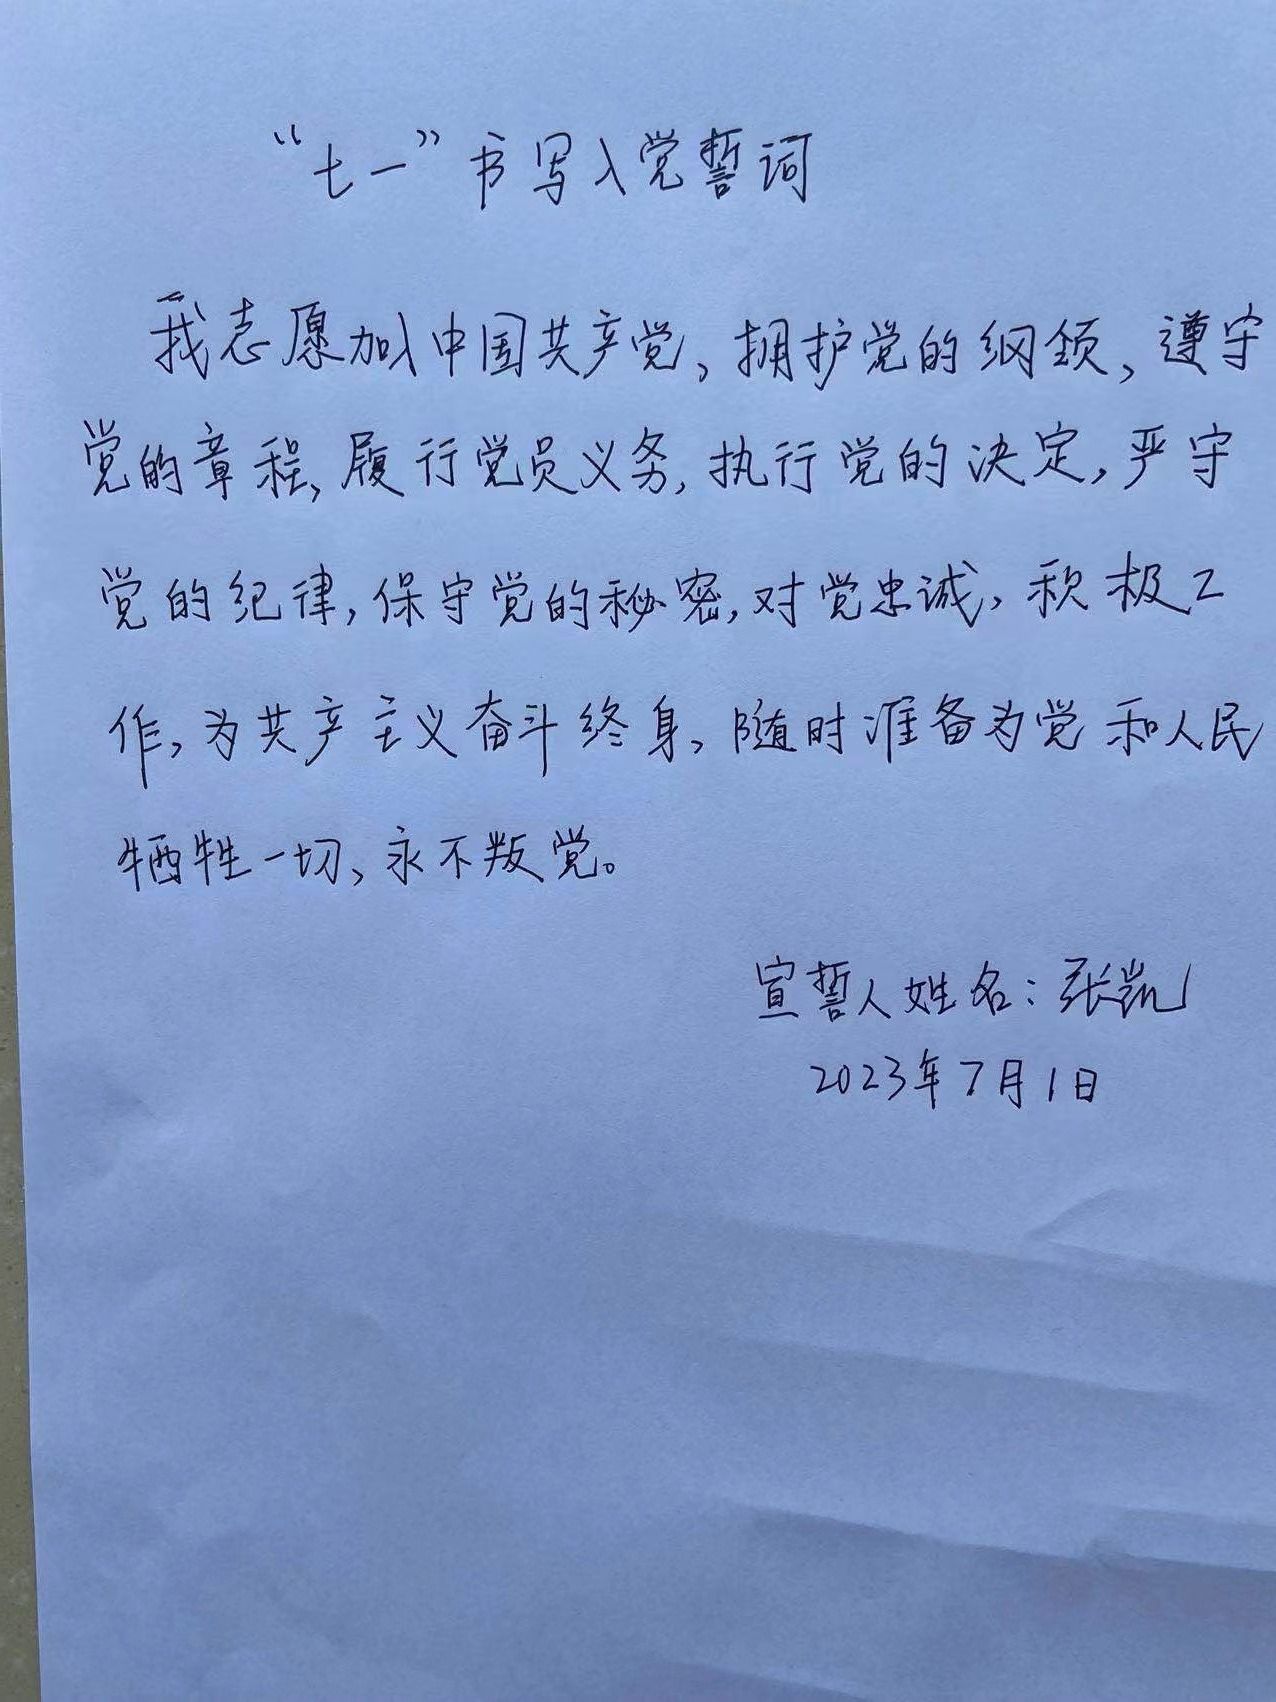 “七一”书写入党誓词
我志愿加入中国共产党，拥护党的纲领，遵守
党的章程，履行党员义务，执行党的决定，严守
党的纪律，保守党的秘密，对党忠诚，积极工
作，为共产主义奋斗终身，随时准备为党和人民
牺牲一切，永不叛党。
宣誓人姓名：张凯
2023年7月1日